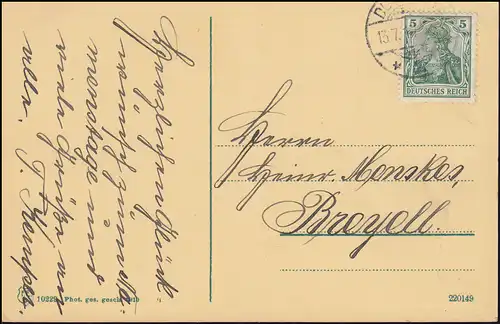 Herzlichen Glück-
wunsch zum
Namenstage und
viele Grüße an
alle.
5 5
DEUTSCHES REICH
13.7.
Herrn
Heinr. Monskes,
Breyell.
10229 Phot. ges. gesch. 1913
220149